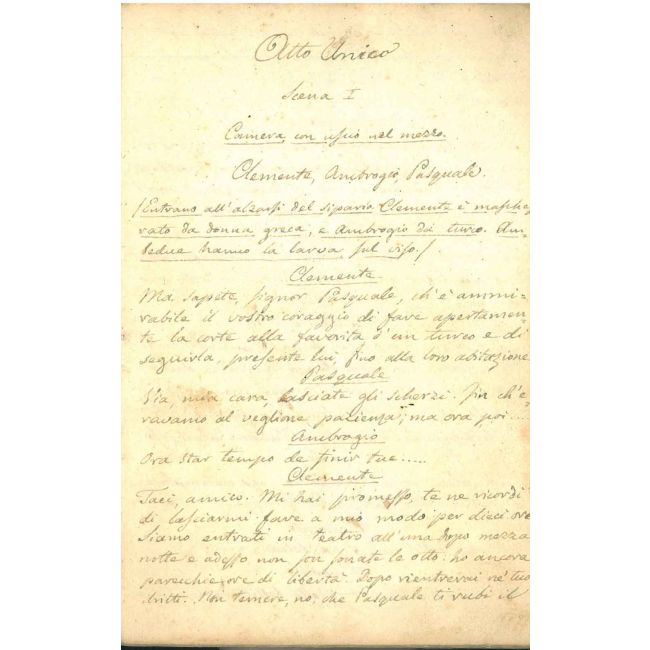 Atto Unico
Scena I
Camera con uscio nel mezzo.
Clemente, Ambrogio, Pasquale.
/Entrano all'alzarsi del sipario Clemente è masche,
rato da donna greca, e Ambrogio da turco. Am-
bedue hanno la larva sul viso./
Clemente
Ma sapete, signor Pasquale, ch'è ammi-
rabile il vostro coraggio di fare apertamen-
te la corte alla favorita d'un turco e di
seguirla, presente lui, fino alla loro abitazione
Pasquale
Via, mia cara, lasciate gli scherzi. Fin ch'e-
ravamo al veglione pazienza; ma ora poi....
Ambrogio
Ora star tempo de finir tue.....
Clemente
Taci, amico. Mi hai promesso, te ne ricordi
di lasciarmi fare a mio modo per dieci ore
Siamo entrati in teatro all'una dopo mezza
notte e adesso non son sonate le otto: ho ancora
parecchie ore di libertà. Dopo rientrerai ne' tuoi
dritti. Non temere, no, che Pasquale ti rubi il